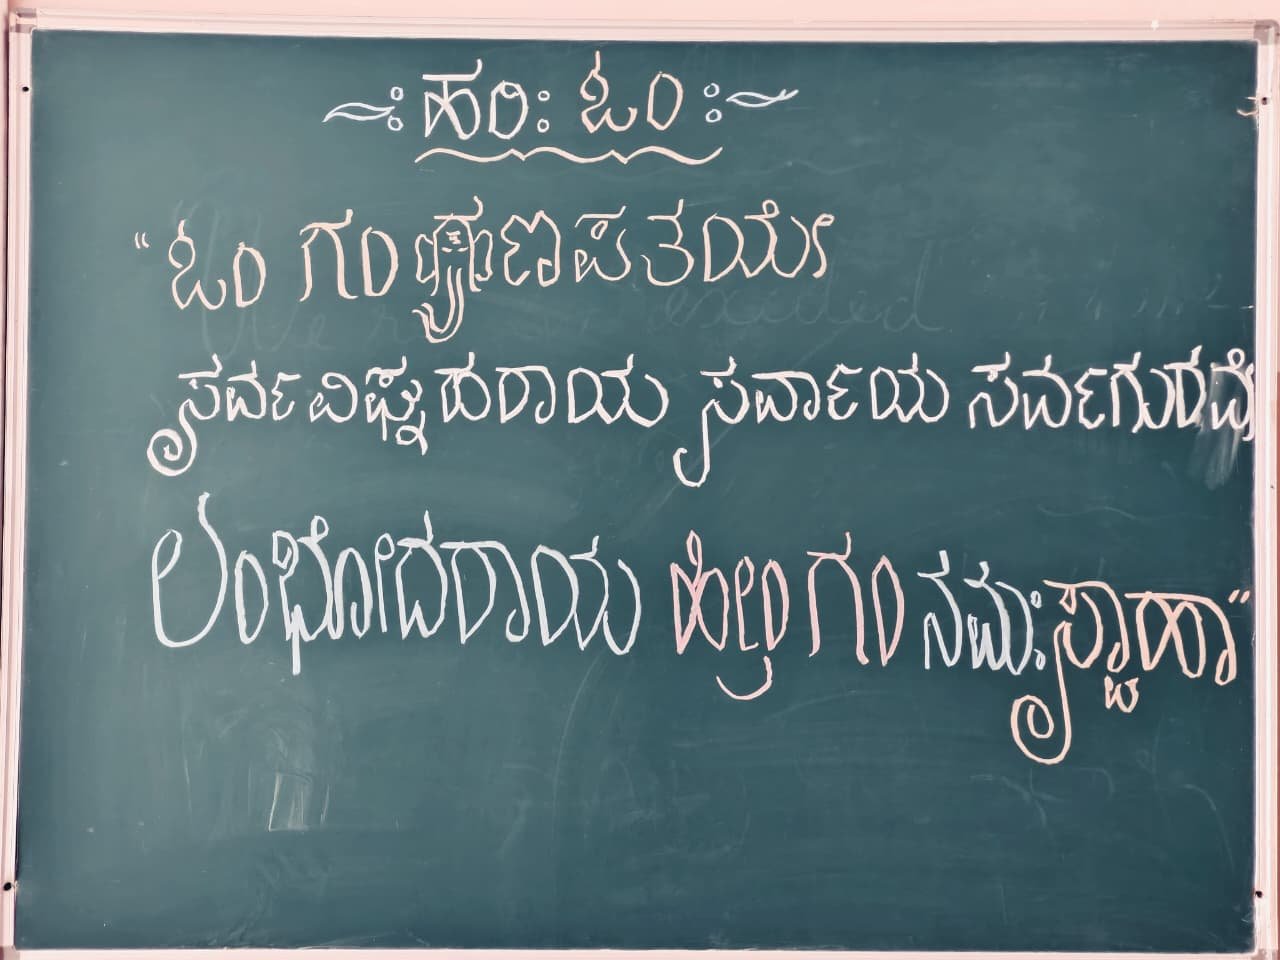 -: ಹರಿ: ಓಂ :-
"ಓಂ ಗಂ ಗಣಪತಯೇ
ಸರ್ವವಿಘ್ನಹರಾಯ ಸರ್ವಾಯ ಸರ್ವಗುರವೇ
ಲಂಭೋದರಾಯ ಹ್ರೀಂ ಗಂ ನಮಃ ಸ್ವಾಹಾ"